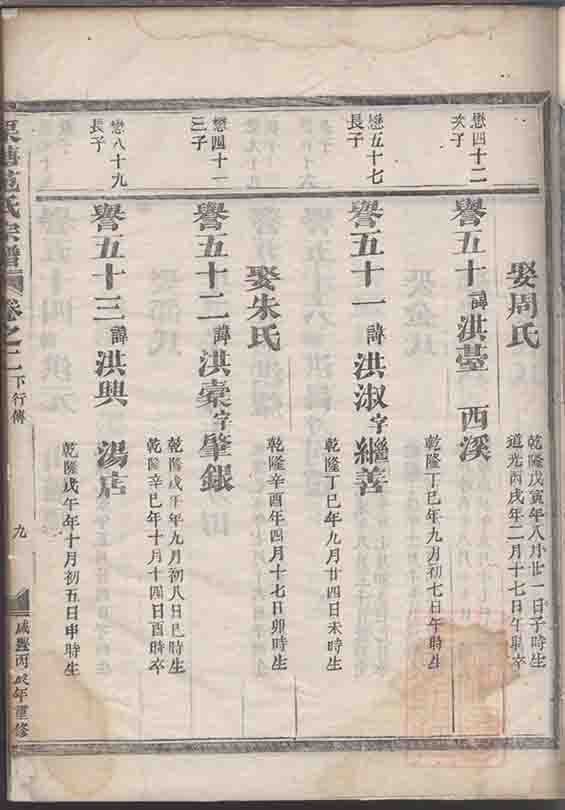 娶周氏
乾隆戊寅年八月廿一日子時生
道光丙戌年二月十七日午時卒
懋四十二
次子
譽五十 諱洪臺 西溪
乾隆丁巳年九月初七日午時生
懋五十七
長子
譽五十一 諱洪淑字繼善
乾隆丁巳年九月廿四日未時生
娶朱氏
乾隆辛酉年四月十七日卯時生
懋四十一
三子
譽五十二 諱洪橐字肇銀
乾隆戊午年九月初八日巳時生
乾隆辛巳年十月十四日酉時卒
懋八十九
長子
譽五十三 諱洪興 湯店
乾隆戊午年十月初五日申時生
氏宗譜 卷之二 下行傳 九 咸豐丙辰年重修